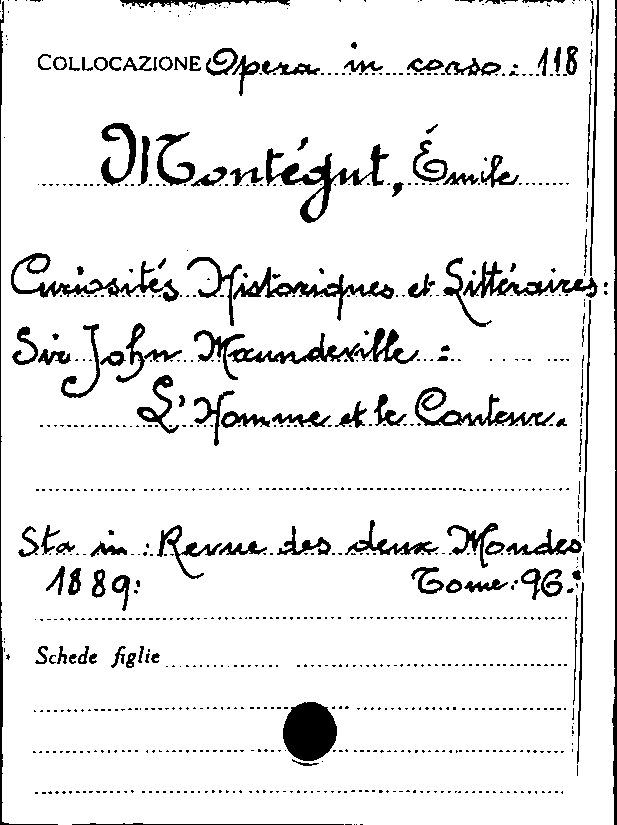 COLLOCAZIONE Opera in corso: 118
Montégut, Émile
Curiosités Historiques et Littéraires:
Sir John Maundeville :
L'Homme et le Conteur.
Sta in : Revue des deux Mondes
1889: Tome: 96:
Schede figlie